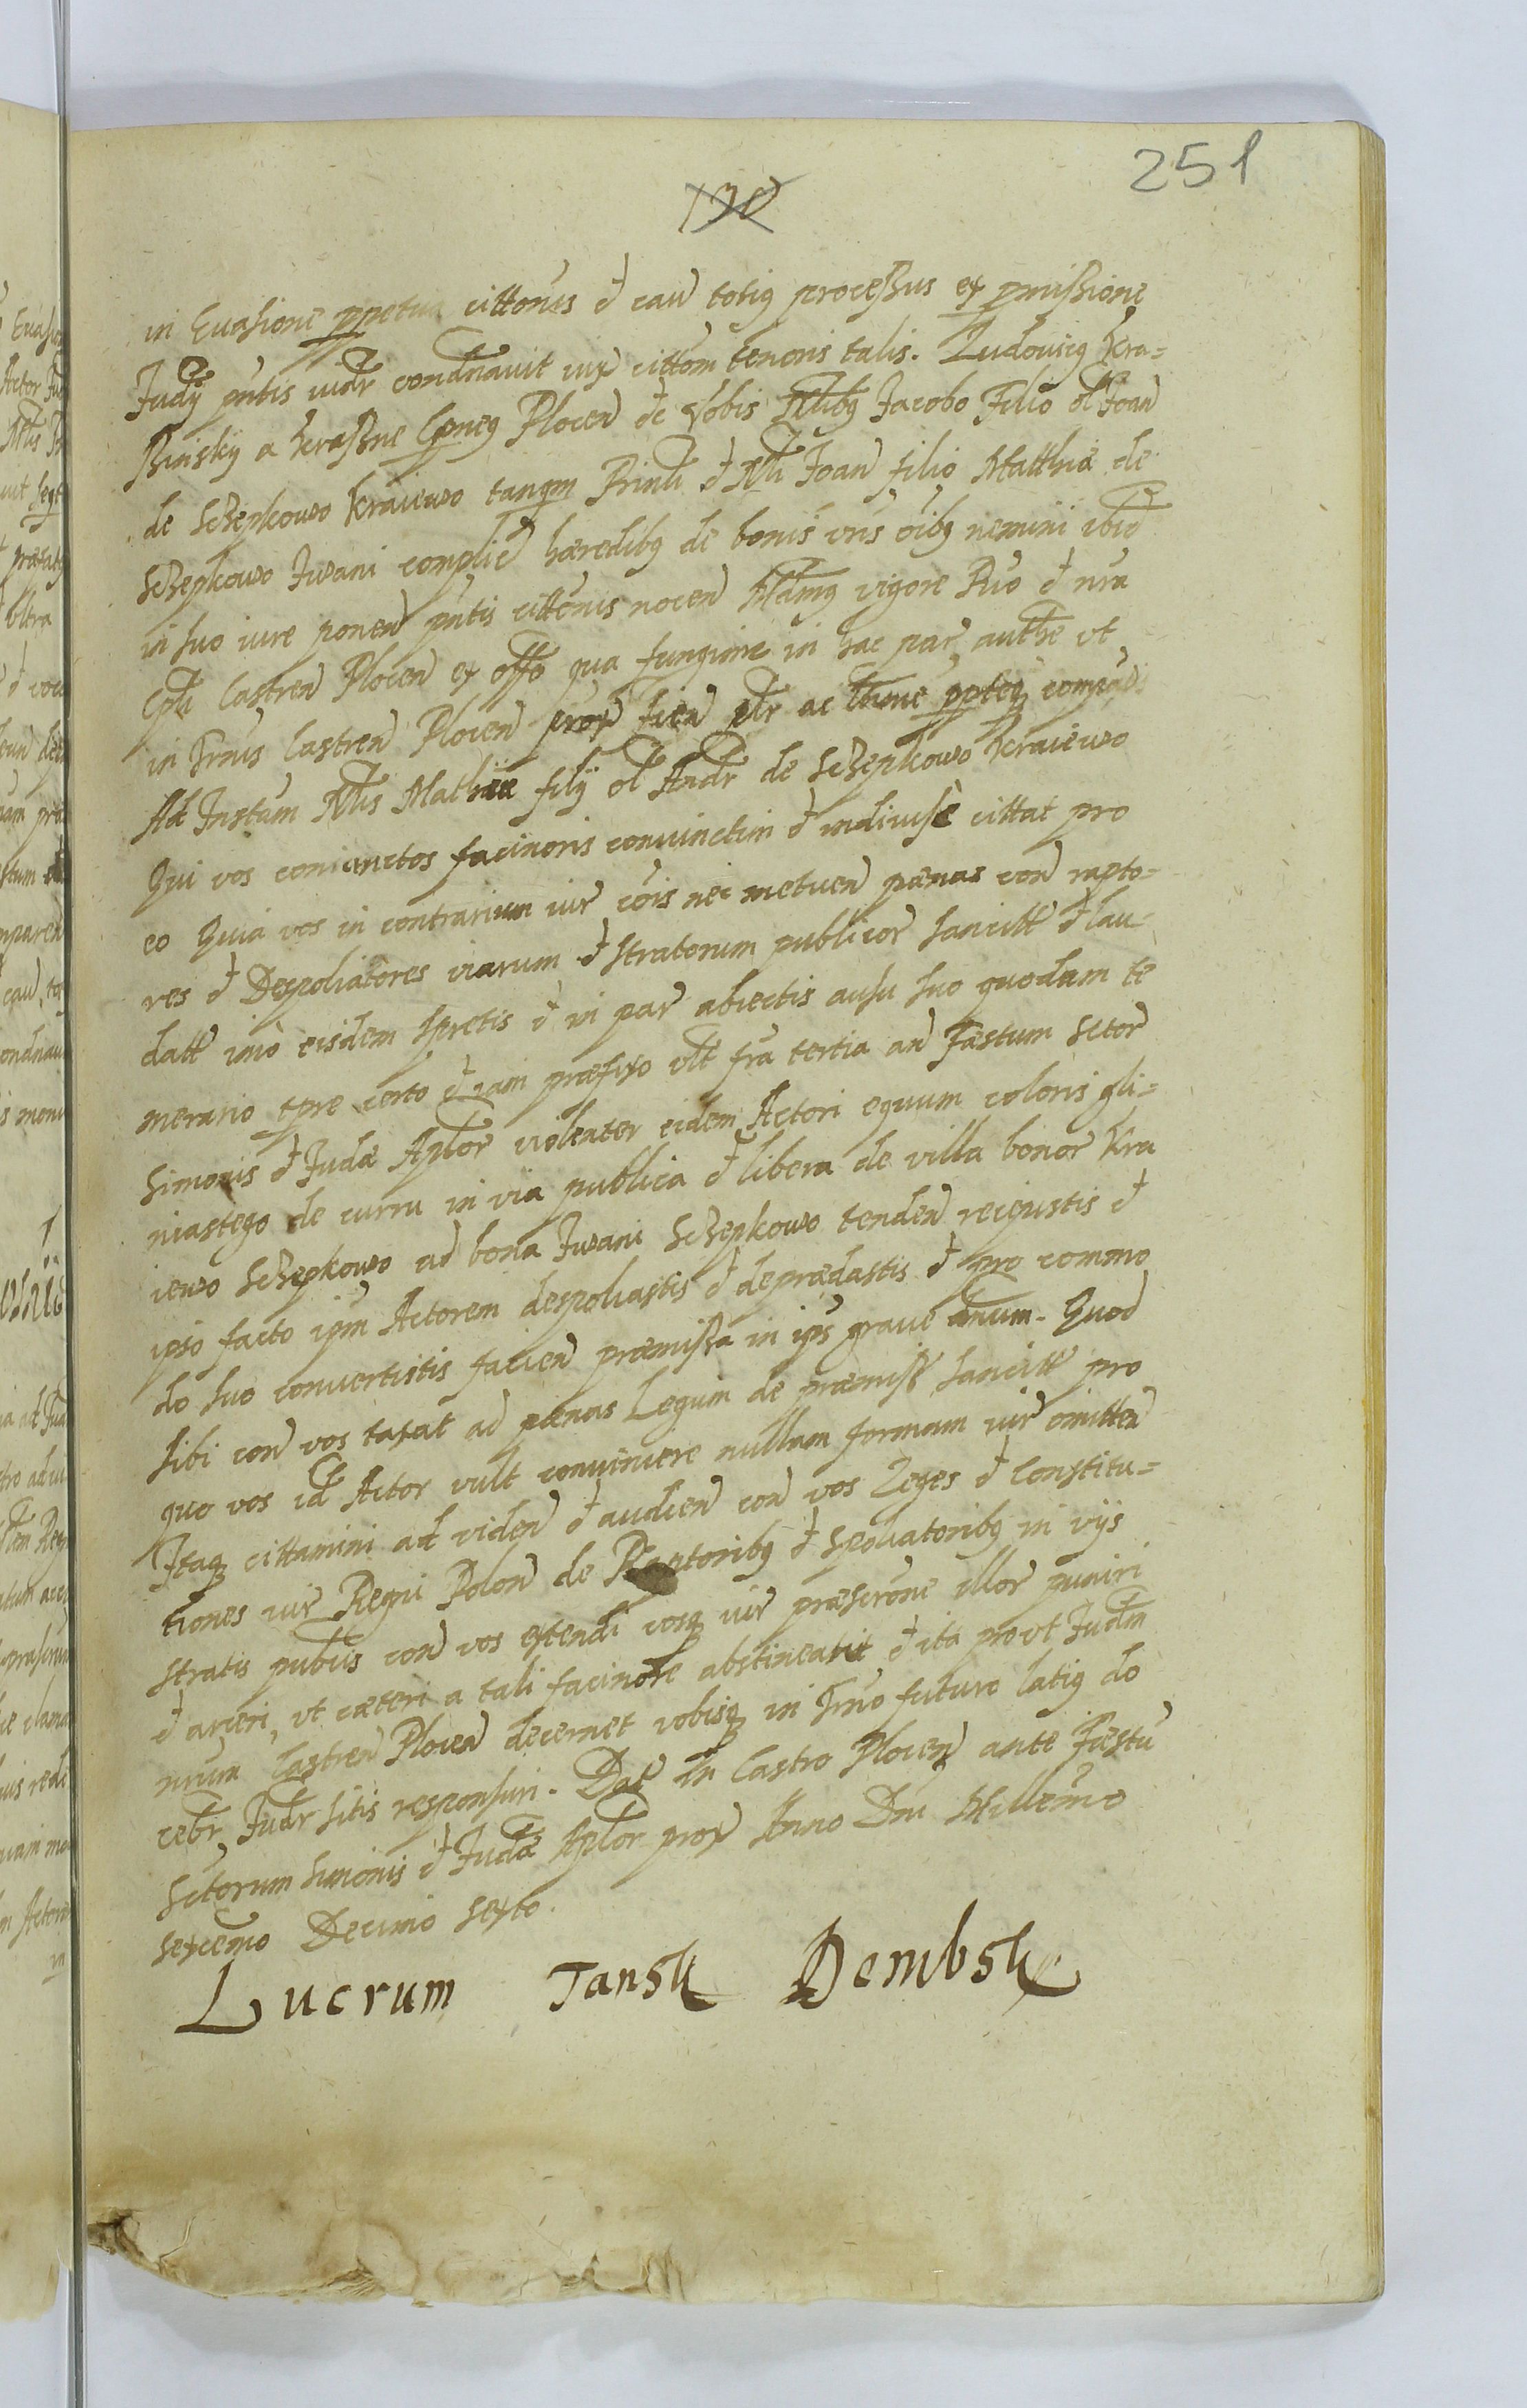 251
in Euasione ppetua cittonis et cau totiq processus ex pmissione
Judÿ pntis iudr condnauit iux cittom tenoris talis. Ludouicq Kra=
ssinskÿ a Krassne Cpneq Plocen etc Vobis Nlibq Jacobo Filio ol Joan
de Sczepkowo Kraiewo tanqm Prinli et Nli Joan filio Matthiæ de
Sczepkowo Jwani complic hæredibq de bonis vris oibq nemini ibid
in suo iure ponen pntis cittonis nocen Mdamq vigore Ruo et nra
Cpli Castren Plocen ex offo qua fungimr in hac par authe vt
in Trnis Castren Plocen prox fien plr ac tame ppteq compar
Ad Instam Nlis Mathiæ filÿ ol Andr de Sczepkowo Kraiewo
Qui vos coniunctos facinoris conuinctim et indiuisè cittat pro
eo Quia vos in contrarium iur cois nec metuen pœnas con rapto=
res et Despoliatores viarum et stratorum publicor sancitt et lau=
datt imò eisdem spretis et in par abiectis ausu suo quodam te
merario tpre certo et iam præfixo vlt fra tertia an Fæstum Sctor
Simonis et Judæ Aplor violenter eidem Actori equum coloris gli=
niastego de curru in via publica et libera de villa bonor Kra
iewo Sczepkowo ad bona Jwani Sczepkowo tenden recepistis et
ipso facto ipm Actorem despoliastis et deprædastis et pro commo
do suo conuertistis facien præmissa in ips graue dnum. Quod
sibi con vos taxat ad pœnas Legum de præmiss sancitt pro
quo vos id Actor vult conuincere nullam formam iur omitten
Itaq cittamini ad viden et audien con vos Leges et Constitu=
tiones iur Regni Polon de Raptoribq et Spoliatoribq in viis
stratis publis con vos extendi vosq iur præscrone illor puniri
et arceri vt cæteri a tali facinore abstineant et ita prout Judm
nrum Castren Plocen decernet vobisq in Trno futuro latiq do
cebr Judr sitis responsuri. Dat in Castro Plocen ante Fæstu
Sctorum Simonis et Judæ Aplor prox Anno Dni Millesimo
sexcemo Decimo Sexto.
Lucrum Tansk Dembsk